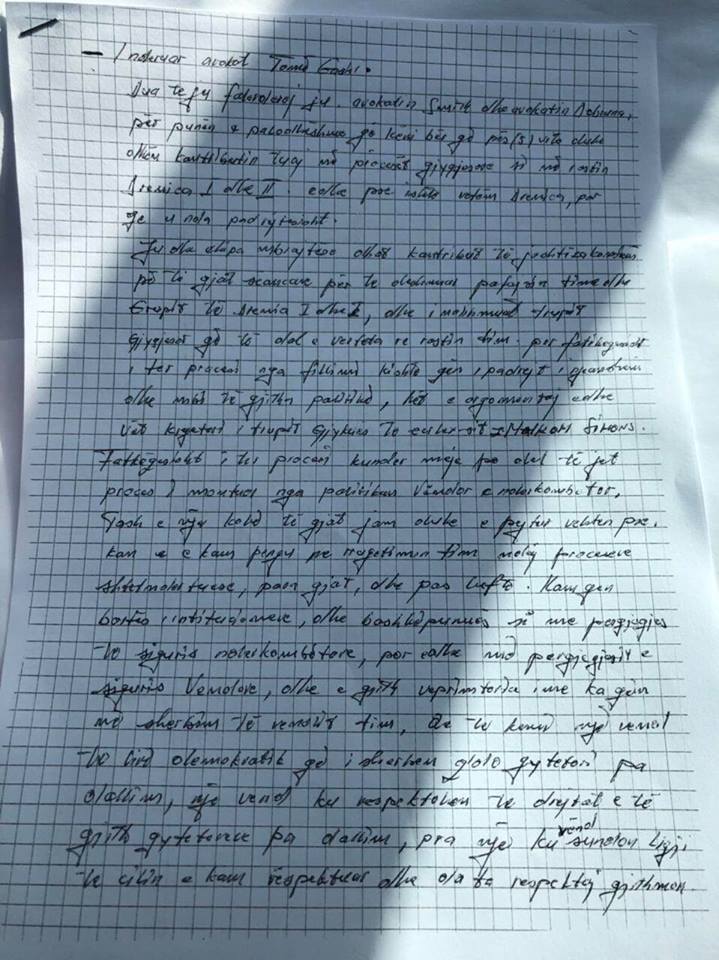 - I nderuar avokat Tomë Gashi.
Dua te ju falenderoj ju. avokatin Smith dhe avokatin Dobruna,
për punën e palodhëshme që keni bër që pës(5) vite duke
dhën kontributin tuaj në procesët gjygjësore si në rastin
Drenica I dhe II. edhe pse ishte vetëm Drenica, por
qe u nda padrejtësisht.
Ju dha shpa mbrojtëse dhat kontribut të jashtëzakonshëm
për të gjat seancave për te dëshmuar pafajsin time dhe
Grupit të Drenica I dhe II, dhe i ndihmuat trupit
Gjygjësor që të dal e verteta ne rastin tim. për fatëkeqësisht
i ter procesi nga fillimi kishte qën i padrejt i
dhe mbi të gjitha politikë, kët e argumentoj edhe
vet kryetari i trupit Gjykues te eulex-it Malkolm Simons.
Fatkeqësisht i ter procesi kunder meje po del të jet
proces i montuar nga politikan Vendor e nderkombëtar.
Tash e një kohë të gjat jam duke e pytur vehten pse.
kam e e kam pengu ne rrugëtimin tim ndaj proceseve
shtetndertuese, para gjat, dhe pas luftë. Kam qen
bartës i institucioneve, dhe bashkëpunues si me pergjegjës
te siguris nderkombëtare, por edhe me pergjegjësit e
siguris Vendore, dhe e gjith veprimtaria ime ka qën
në sherbim të vendit tim, qe te kemi një vend
te lirë demokratik që i sherben çdo qytetari pa
dallim, një vend ku respektohen te drejtat e të
gjith qytetarve pa dallim, pra një vend ku sundon ligji
te cilin e kam respektuar dhe do ta respektoj gjithmon.